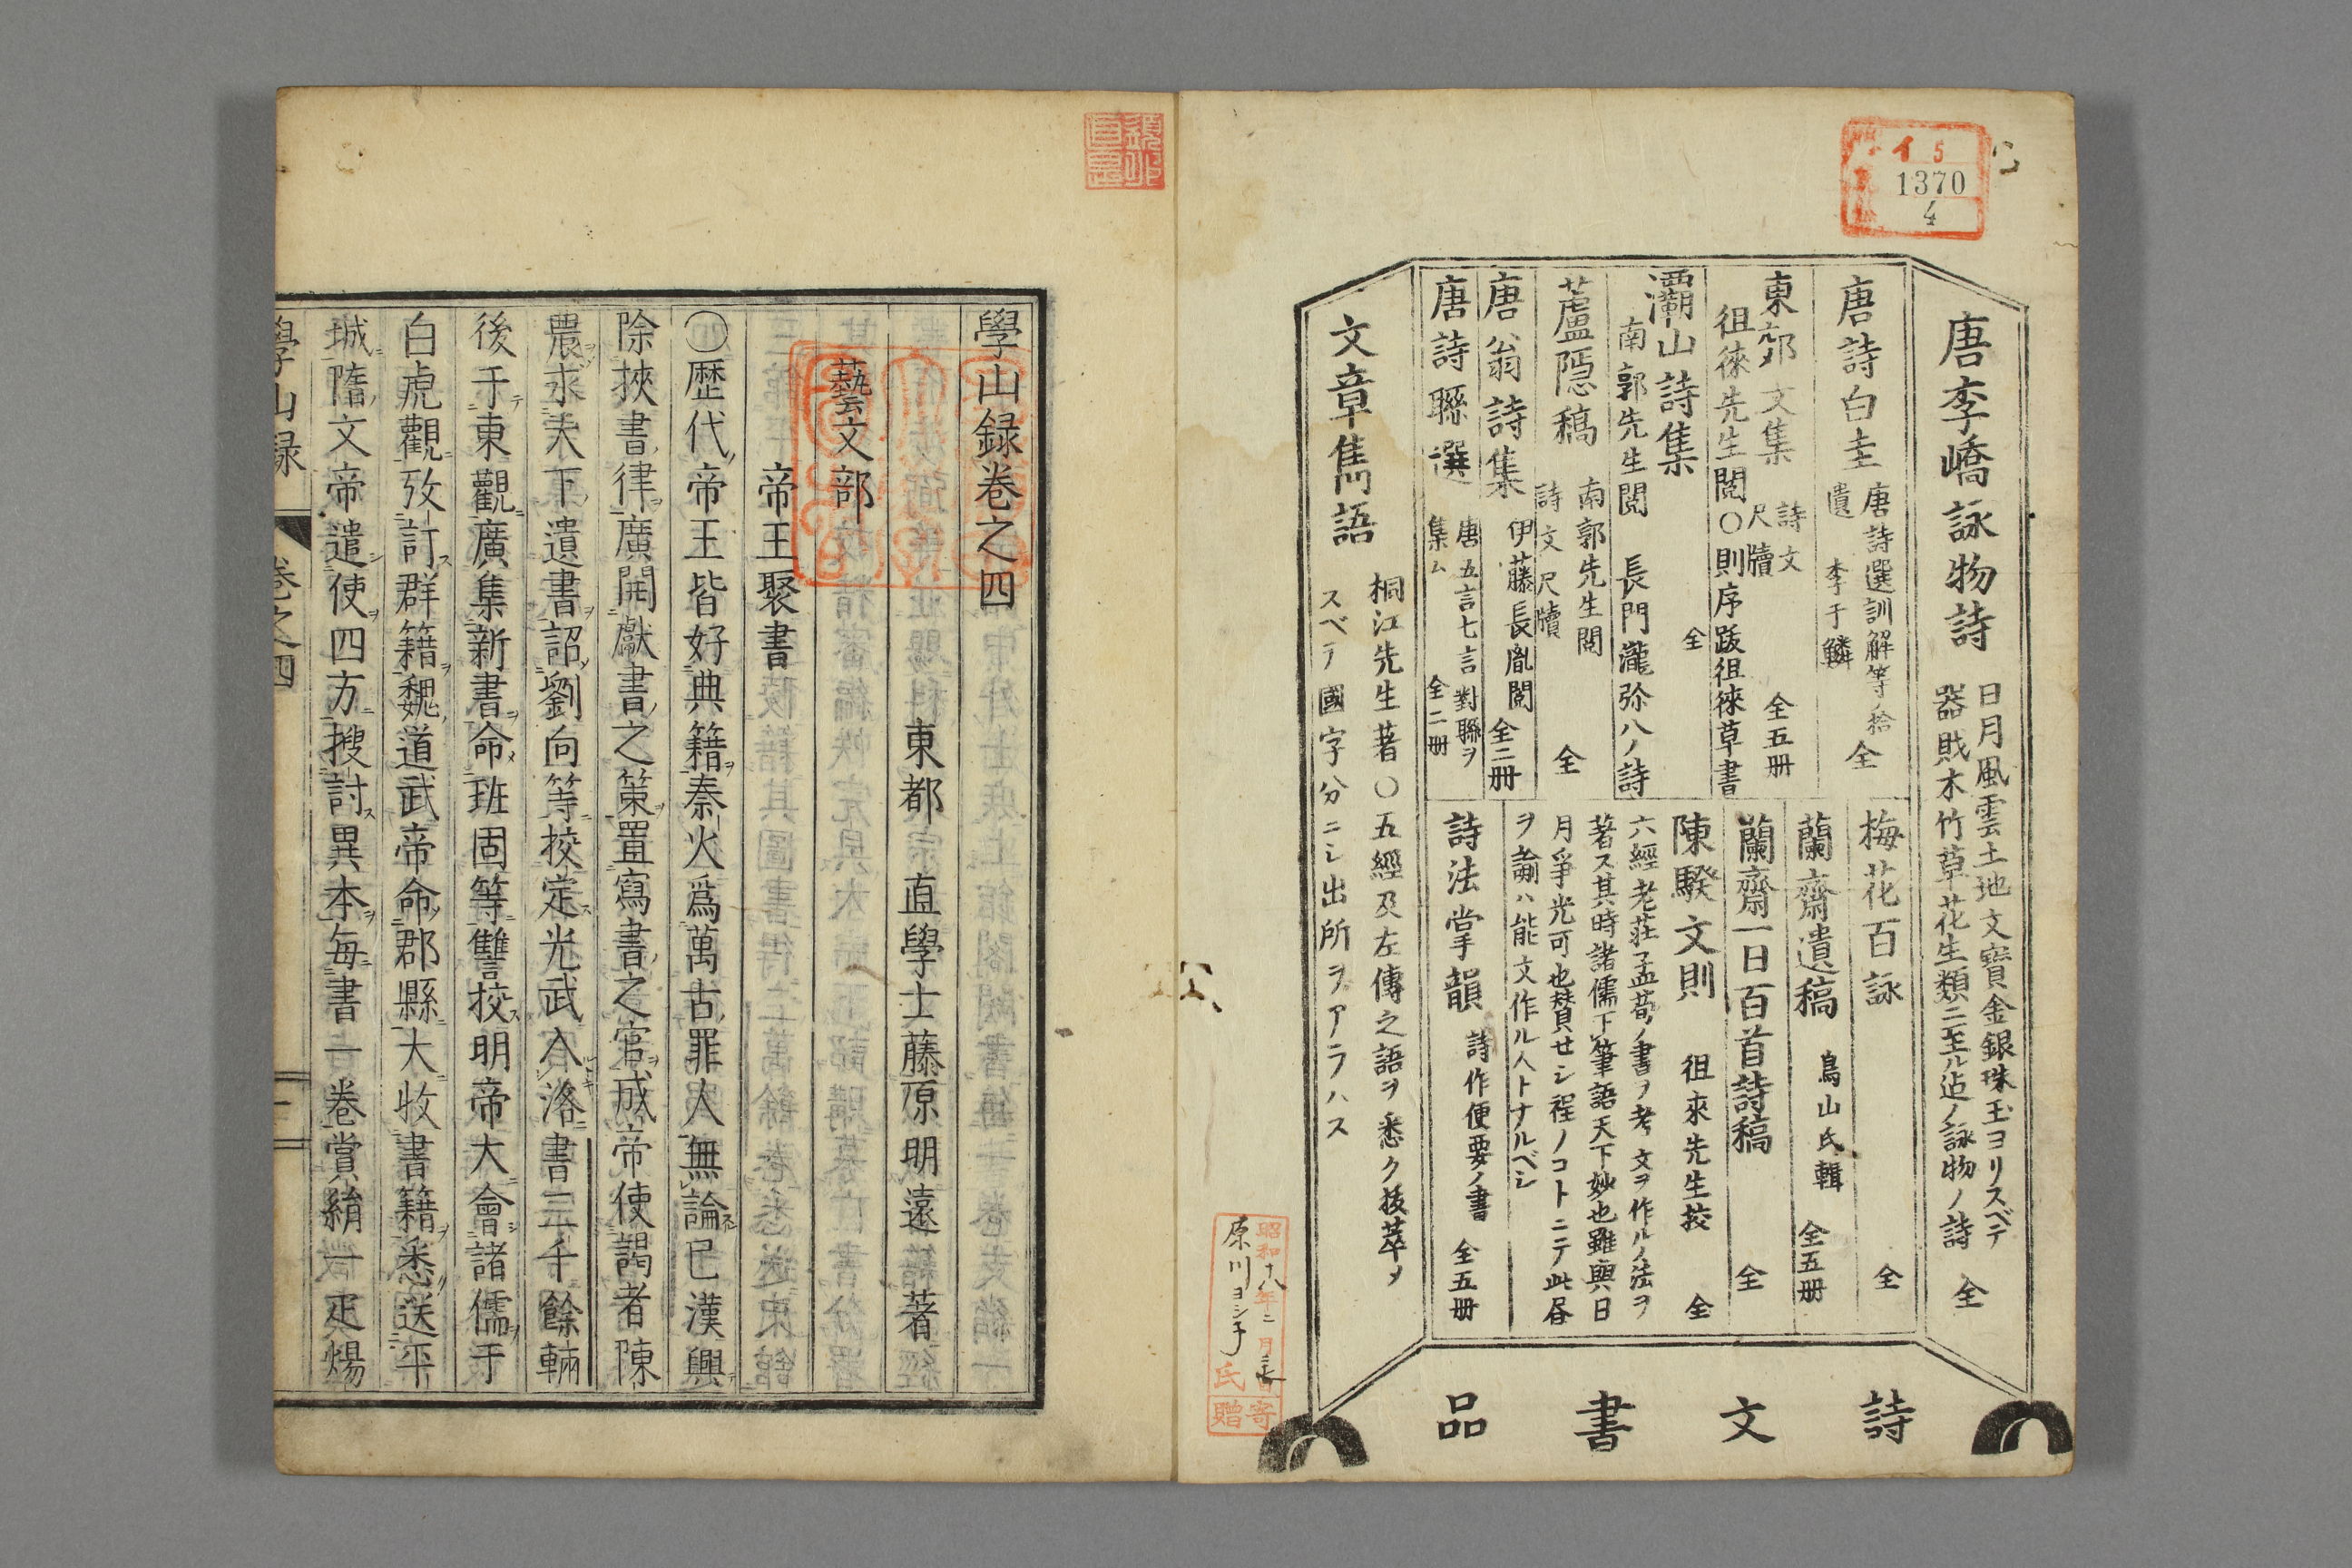 イ5
1370
4
唐李嶠詠物詩
日月風雲土地文寶金銀珠玉ヨリスベテ
器財木竹草花生類ニ至ル迠ノ詠物ノ詩 全
唐詩白圭
唐詩選訓解等ノ拾
遺 李于鱗 全
東郊文集
詩文
尺牘 全五冊
徂徠先生閲〇則序跋徂徠草書
灞山詩集 全
南郭先生閲 長門瀧弥八ノ詩
蘆隠稿
南郭先生閲
詩文尺牘 全
唐翁詩集 伊藤長胤閲 全二冊
唐詩聯選
唐五言七言對聯ヲ
集ム 全二冊
梅花百詠 全
蘭齋遺稿 鳥山氏輯 全五冊
蘭齋一日百首詩稿 全
陳騤文則 徂來先生挍 全
六經老荘孟荀ノ書ヲ考文ヲ作ルノ法ヲ
著ス其時諸儒下筆語天下妙也雖與日
月爭光可也賛せシ程ノコトニテ此書
ヲ諭ハ能文作ル人トナルベシ
詩法掌韻 詩作便要ノ書 全五冊
文章雋語
桐江先生著〇五經及左傳之語ヲ悉ク抜萃メ
スベテ國字分ニシ出所ヲアラハス
詩文書品
昭和十八年二月
原川ヨシ子氏
寄贈
學山録卷之四
東都 直學士藤原明遠著
藝文部
帝王聚書
〇歴代ノ帝王皆好典籍ヲ秦火爲萬古罪人無論已漢興テ
除挾書ノ律ヲ廣開獻書之策ヲ置寫書之官ヲ成帝使謁者陳
農ヲ求天下ノ遺書ヲ詔劉向等ニ挍定ス光武入洛ニ書二千餘輛
後于東觀ニ廣集新書ヲ命班固等ニ讐挍ス明帝大會諸儒ヲ于
白虎觀ニ攷訂ス群籍ヲ魏道武帝命郡縣ニ大收書籍ヲ悉送平
城ニ隋ノ文帝遣使ヲ四方ニ捜討ス異本ヲ毎書一卷賞絹一疋煬
學山録 卷之四 一